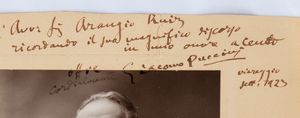 Avv: Arangio Ruiz
ricordando il suo magnifico discorso
in mio onore a Cento
offre
cordialmente Giacomo Puccini
Viareggio
sett. 1923